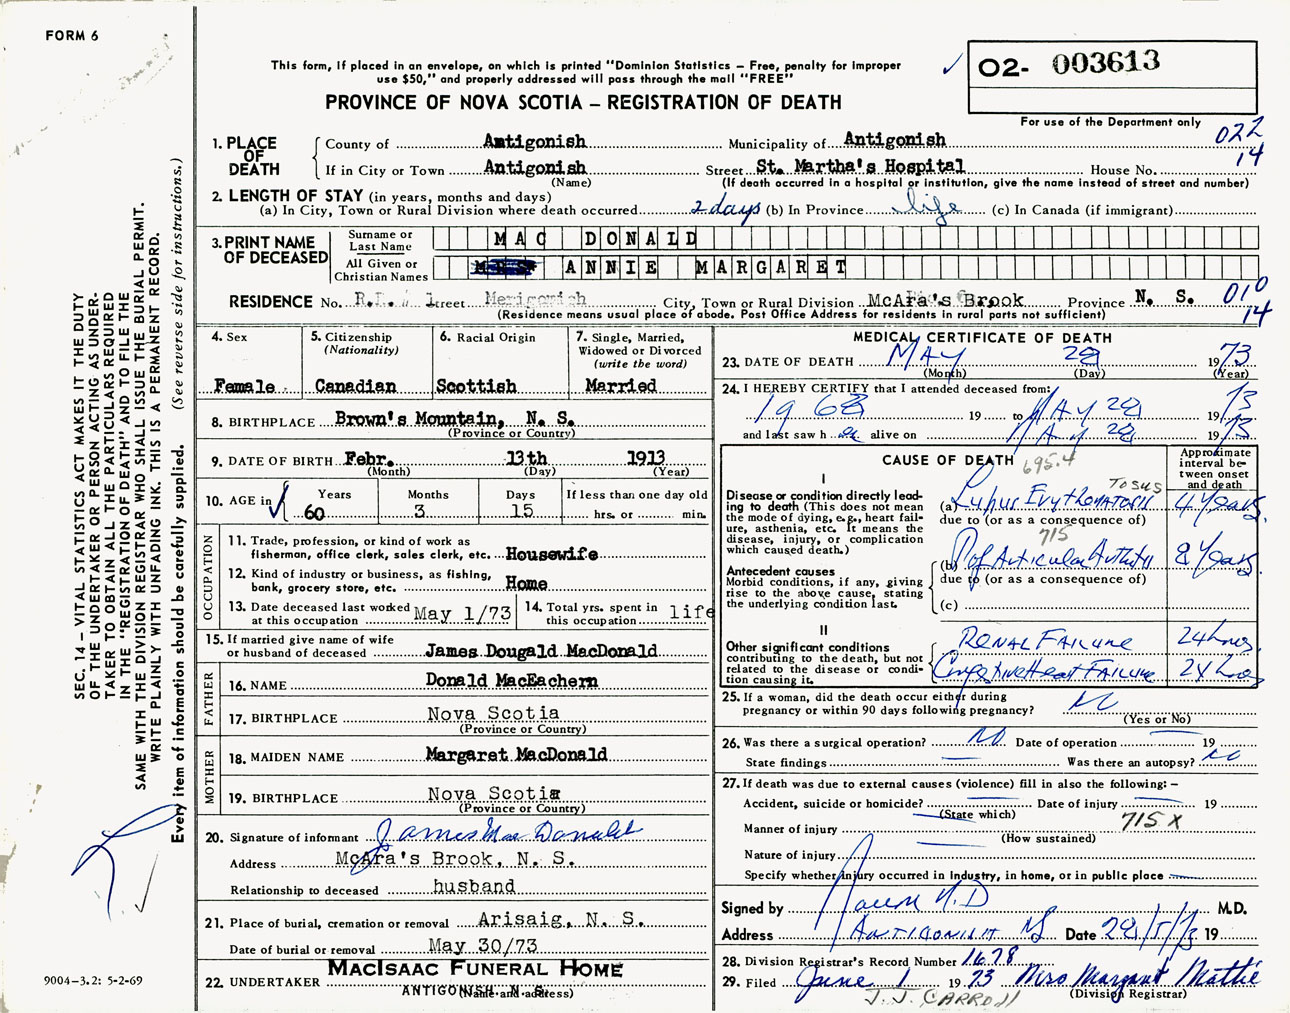 FORM 6
This form, if placed in an envelope, on which is printed "Dominion Statistics – Free, penalty for improper
use $50," and properly addressed will pass through the mail "FREE"
PROVINCE OF NOVA SCOTIA – REGISTRATION OF DEATH
O2- 003613
For use of the Department only
022
14
1. PLACE OF DEATH
County of Antigonish Municipality of Antigonish
If in City or Town Antigonish Street St. Martha's Hospital House No.
(Name) (If death occurred in a hospital or institution, give the name instead of street and number)
2. LENGTH OF STAY (in years, months and days)
(a) In City, Town or Rural Division where death occurred 2 days (b) In Province life (c) In Canada (if immigrant)
3. PRINT NAME OF DECEASED
Surname or Last Name MAC DONALD
All Given or Christian Names ANNIE MARGARET
RESIDENCE No. R.R. 1 Street Merigonish City, Town or Rural Division McAra's Brook Province N. S. 010
14
(Residence means usual place of abode. Post Office Address for residents in rural parts not sufficient)
4. Sex
Female
5. Citizenship
(Nationality)
Canadian
6. Racial Origin
Scottish
7. Single, Married,
Widowed or Divorced
(write the word)
Married
8. BIRTHPLACE Brown's Mountain, N. S.
(Province or Country)
9. DATE OF BIRTH Febr. 13th 1913
(Month) (Day) (Year)
10. AGE in Years Months Days If less than one day old
60 3 15 hrs. or min.
OCCUPATION
11. Trade, profession, or kind of work as
fisherman, office clerk, sales clerk, etc. Housewife
12. Kind of industry or business, as fishing,
bank, grocery store, etc. Home
13. Date deceased last worked
at this occupation May 1/73
14. Total yrs. spent in
this occupation life
15. If married give name of wife
or husband of deceased James Dougald MacDonald
FATHER
16. NAME Donald MacEachern
17. BIRTHPLACE Nova Scotia
(Province or Country)
MOTHER
18. MAIDEN NAME Margaret MacDonald
19. BIRTHPLACE Nova Scotia
(Province or Country)
20. Signature of informant James MacDonald
Address McAra's Brook, N. S.
Relationship to deceased husband
21. Place of burial, cremation or removal Arisaig, N. S.
Date of burial or removal May 30/73
MACISAAC FUNERAL HOME
22. UNDERTAKER ANTIGONISH, N. S.
(Name and address)
MEDICAL CERTIFICATE OF DEATH
23. DATE OF DEATH MAY 28 1973
(Month) (Day) (Year)
24. I HEREBY CERTIFY that I attended deceased from:
1968 19 to MAY 28 1973
and last saw h er alive on MAY 28 1973
CAUSE OF DEATH 695.4
Approximate interval between onset and death
I
Disease or condition directly lead-
ing to death (This does not mean
the mode of dying, e.g., heart fail-
ure, asthenia, etc. It means the
disease, injury, or complication
which caused death.)
TOSUS
(a) Lupus Erythematosis 4 Years
due to (or as a consequence of)
715
Antecedent causes
Morbid conditions, if any, giving
rise to the above cause, stating
the underlying condition last.
(b) Articular Arthritis 8 Years
due to (or as a consequence of)
(c)
II
Other significant conditions
contributing to the death, but not
related to the disease or condi-
tion causing it.
RENAL FAILURE 24 hours
Congestive Heart FAILURE 24 hours
25. If a woman, did the death occur either during
pregnancy or within 90 days following pregnancy? No
(Yes or No)
26. Was there a surgical operation? No Date of operation 19
State findings Was there an autopsy? No
27. If death was due to external causes (violence) fill in also the following: –
Accident, suicide or homicide? Date of injury 19
(State which) 715 X
Manner of injury
(How sustained)
Nature of injury
Specify whether injury occurred in industry, in home, or in public place
Signed by M.D M.D.
Address ANTIGONISH NS Date 28/5/73 19
28. Division Registrar's Record Number 1678
29. Filed June 1 1973 Mrs Margaret Mattie
(Division Registrar)
J.J. CARROLL
SEC. 14 – VITAL STATISTICS ACT MAKES IT THE DUTY
OF THE UNDERTAKER OR PERSON ACTING AS UNDER-
TAKER TO OBTAIN ALL THE PARTICULARS REQUIRED
IN THE "REGISTRATION OF DEATH" AND TO FILE THE
SAME WITH THE DIVISION REGISTRAR WHO SHALL ISSUE THE BURIAL PERMIT.
WRITE PLAINLY WITH UNFADING INK. THIS IS A PERMANENT RECORD.
Every item of information should be carefully supplied. (See reverse side for instructions.)
9004-3.2: 5-2-69